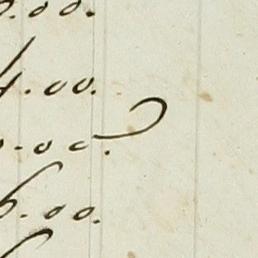 0.00.
4.00.
0.00.
6.00.